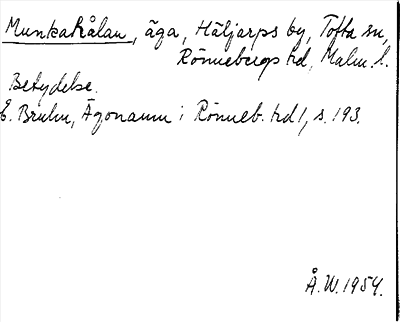 Munkakålan, äga, Häljarps by, Tofta sn,
Rönnebergs hd, Malm. l.
Betydelse.
E. Bruhn, Ägonamn i Rönneb. hd 1, s. 193.
Å.W. 1954.